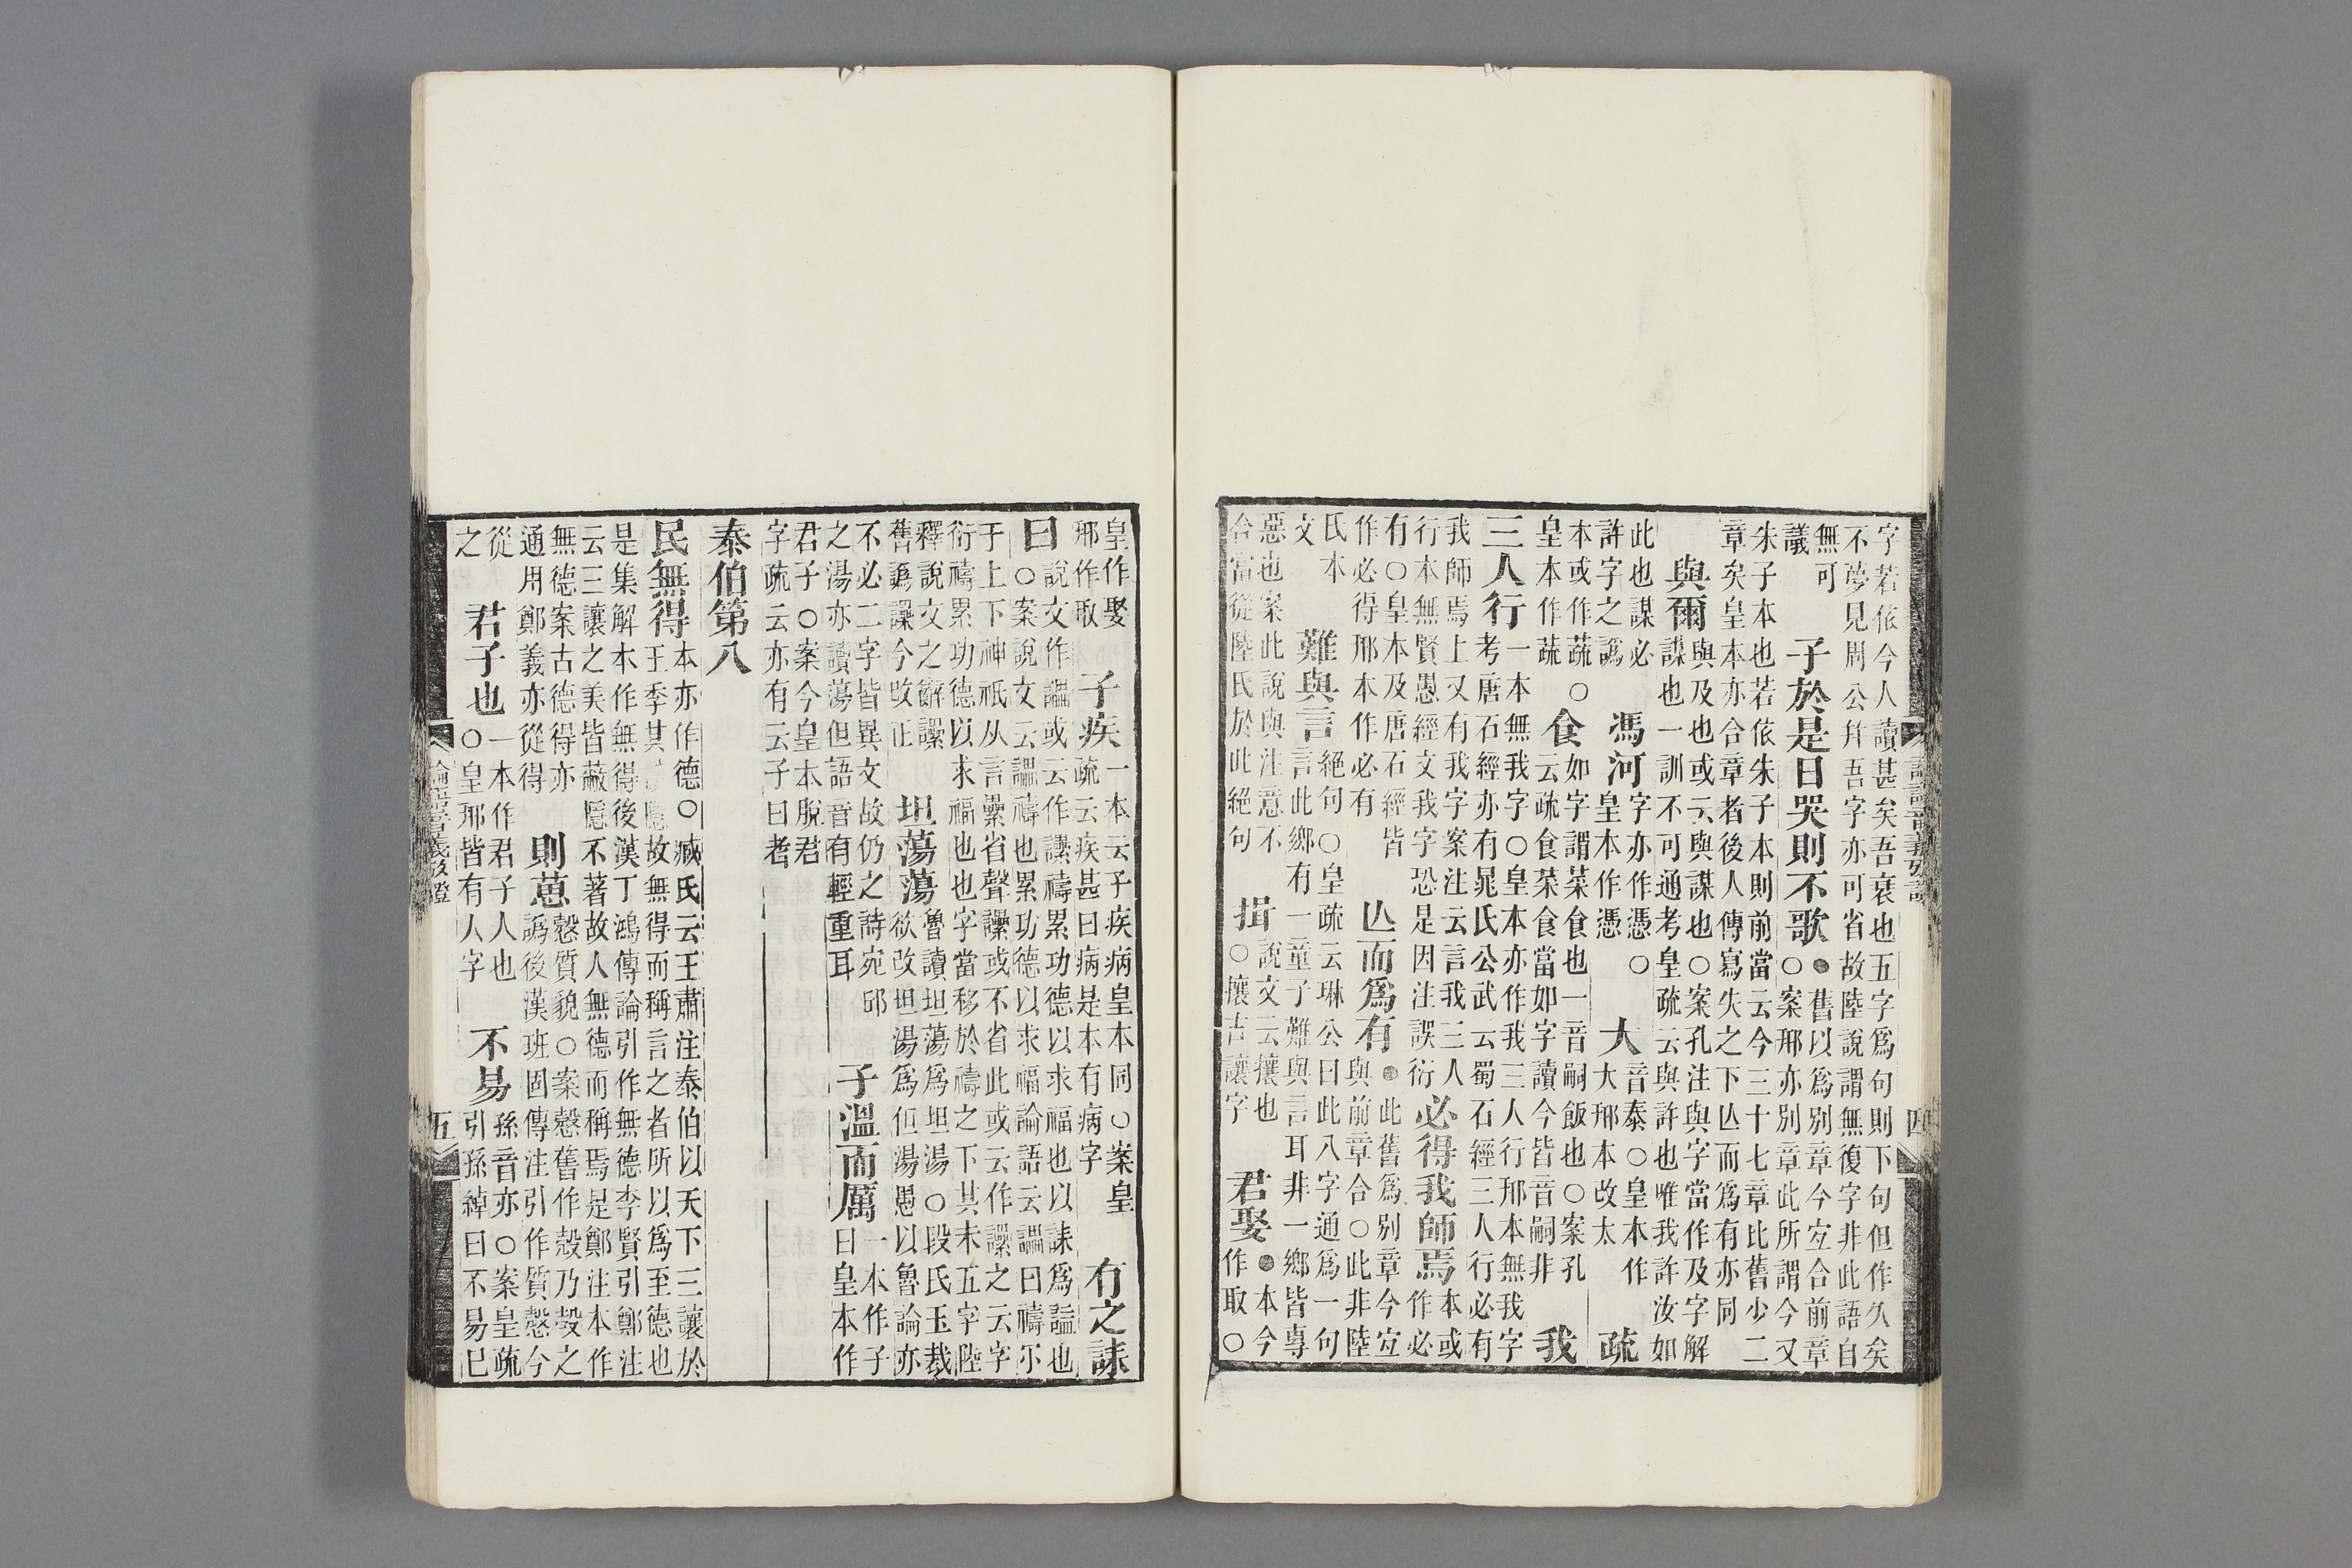 字若依今人讀甚矣吾衰也五字爲句則下句但作久矣
不夢見周公幷吾字亦可省故陸說謂無復字非此語自
無可
議
子於是日哭則不歌
●舊以爲別章今宜合前章
○案邢亦別章此所謂今又
朱子本也若依朱子本則前當云今三十七章比舊少二
章矣皇本亦合章者後人傳寫失之下亾而爲有亦同
與爾
與及也或云與謀也○案孔注與字當作及字解
謀也一訓不可通考皇疏云與許也唯我許汝如
此也謀必
許字之譌
馮河
字亦作憑○
皇本作憑
大
音泰○皇本作
大邢本改太
疏
本或作蔬○
皇本作蔬
食
如字謂菜食也一音嗣飯也○案孔
云疏食菜食當如字讀今皆音嗣非
我
三人行
一本無我字○皇本亦作我三人行邢本無我字
考唐石經亦有晁氏公武云蜀石經三人行必有
我師焉上又有我字案注云言我三人
行本無賢愚經文我字恐是因注誤衍
必得我師焉
本或
作必
有○皇本及唐石經皆
作必得邢本作必有
亾而爲有
●此舊爲別章今宜
與前章合○此非陸
氏本
文
難與言
絕句○皇疏云琳公曰此八字通爲一句
言此鄉有一童子難與言耳非一鄉皆專
惡也案此說與注意不
合當從陸氏於此絕句
揖
說文云攘也
○攘古讓字
君娶
●本今
作取○
四
皇作娶
邢作取
子疾
一本云子疾病皇本同○案皇
疏云疾甚曰病是本有病字
有之誄
曰
說文作讄或云作讄禱累功德以求福也以誄爲諡也
○案說文云讄禱也累功德以求福論語云讄曰禱尒
于上下神祇从言纍省聲讄或不省此或云作讄之云字
衍禱累功德以求福也也字當移於禱之下其末五字陸
釋說文之辭讄
舊譌讄今改正
坦蕩蕩
魯讀坦蕩爲坦湯○段氏玉裁
欲改坦湯爲但湯愚以魯論亦
不必二字皆異文故仍之詩宛邱
之湯亦讀蕩但語音有輕重耳
子溫而厲
一本作子
曰皇本作
君子○案今皇本脫君
字疏云亦有云子曰者
泰伯第八
民無得
本亦作德○臧氏云王肅注泰伯以天下三讓於
王季其隱故無得而稱言之者所以爲至德也
是集解本作無得後漢丁鴻傳論引作無德李賢引鄭注
云三讓之美皆蔽隱不著故人無德而稱焉是鄭注本作
無德案古德得亦
通用鄭義亦從得
則葸
慤質貌○案慤舊作殼乃㱿之
譌後漢班固傳注引作質慤今
從
之
君子也
一本作君子人也
○皇邢皆有人字
不易
孫音亦○案皇疏
引孫綽曰不易已
論語音義攷證
五